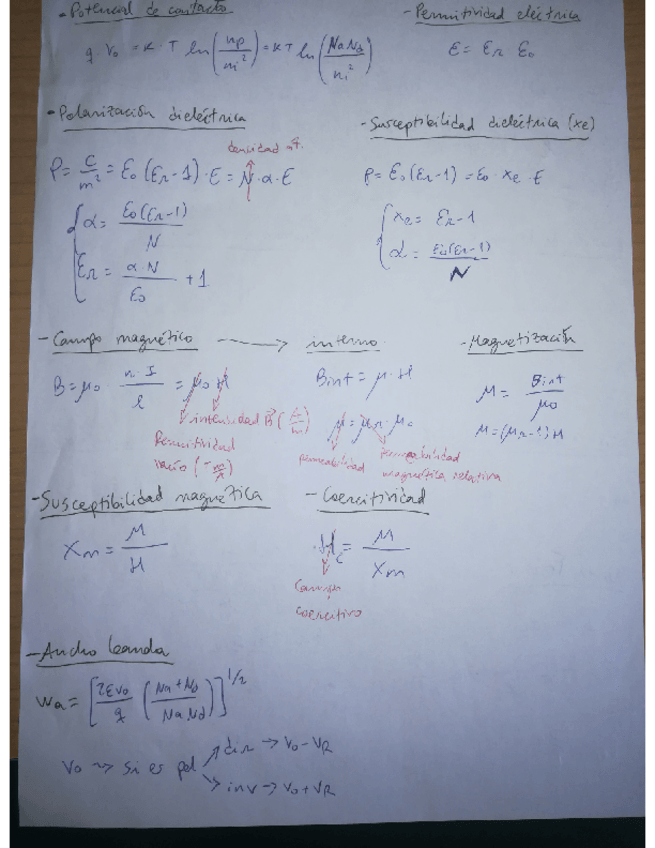 - Potencial de contacto
q·V₀ = K·T ln(np/ni²) = KT ln(Na Nd/ni²)
- Permitividad eléctrica
ε = εr ε₀
- Polarización dieléctrica
densidad at.
P = C/m² = ε₀(εr-1)·E = N·α·E
α = ε₀(εr-1)/N
εr = α·N/ε₀ + 1
- Susceptibilidad dieléctrica (xe)
P = ε₀(εr-1) = ε₀·xe·E
xe = εr-1
α = ε₀(εr-1)/N
- Campo magnético → interno
B = μ₀ n·I/l = μ₀ H
intensidad B⃗
Permitividad
vacío
Bint = μ·H
μ = μr·μ₀
permeabilidad
permeabilidad
magnética relativa
- Magnetización
M = Bint/μ₀
M = (μr-1)H
- Susceptibilidad magnética
Xm = M/H
- Coercitividad
Hc = M/Xm
Campo
coercitivo
- Ancho banda
Wa = [2εV₀/q (Na+Nd/Na.Nd)]^1/2
V₀ → si es pol
dir → V₀-VR
inv → V₀+VR